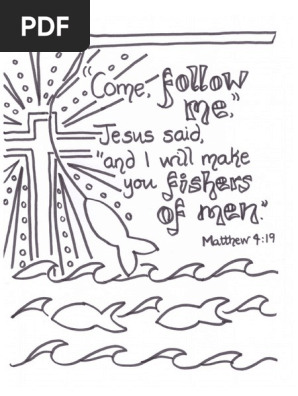 PDF
"Come, follow
me,"
Jesus said,
"and I will make
you fishers
of men."
Matthew 4:19